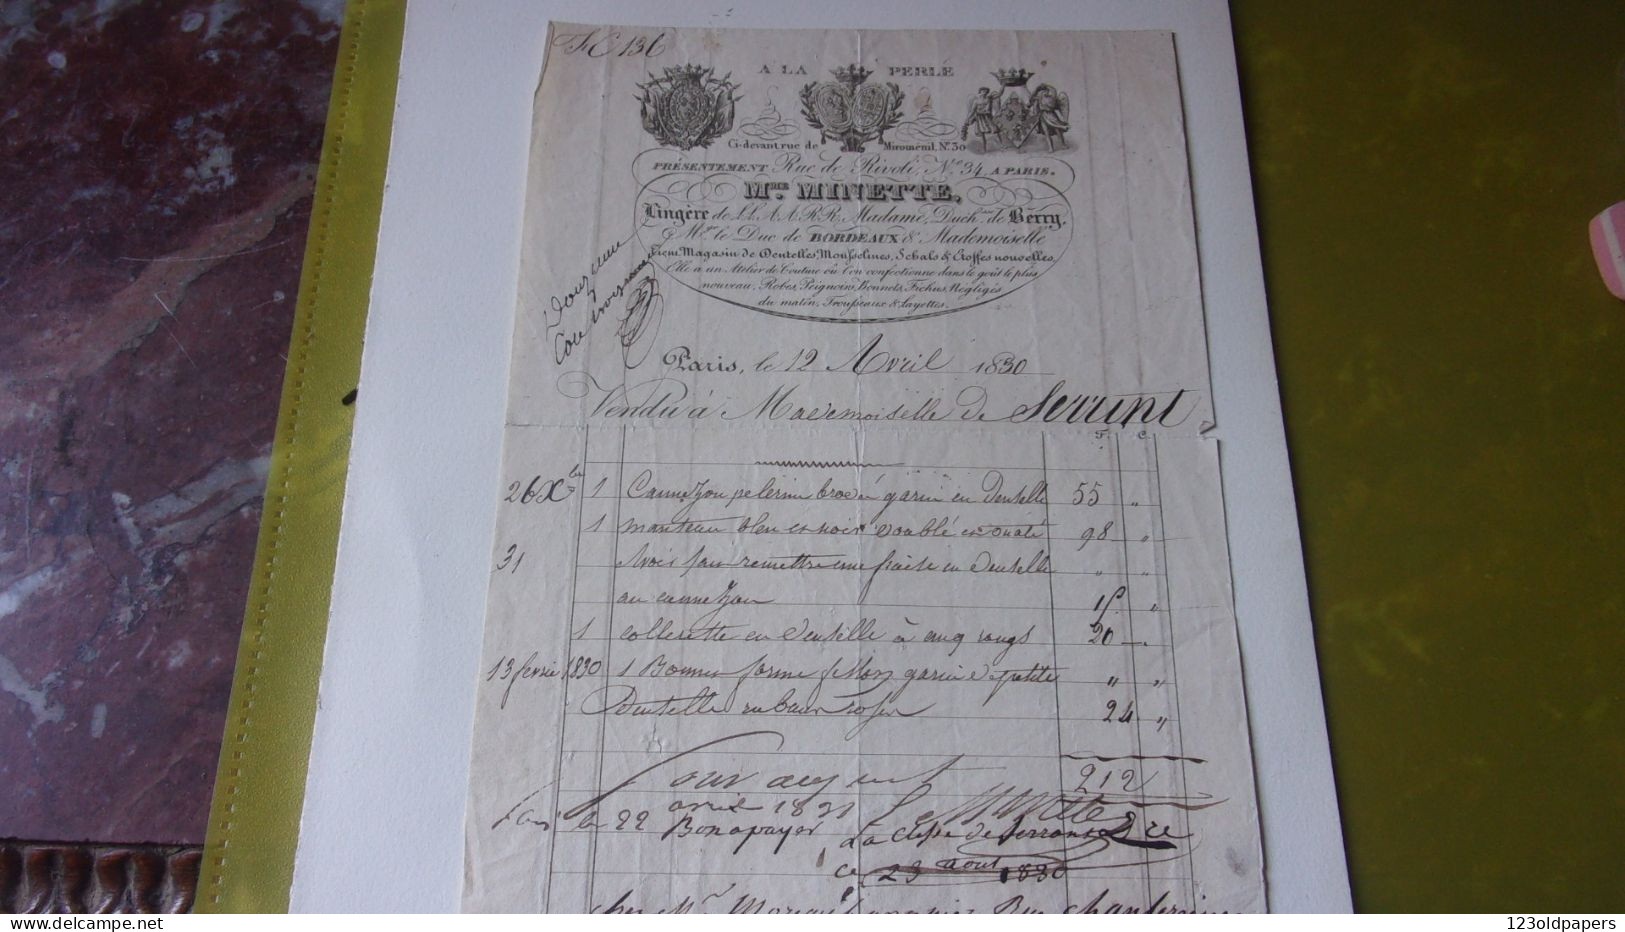 136
A LA PERLE
Ci-devant rue de Miroménil, N.º 30
PRÉSENTEMENT Rue de Rivoli, N.º 34, A PARIS.
M.ME MINETTE,
Lingère de LL.AA.RR. Madame, Duch.sse de Berry,
M.gr le Duc de BORDEAUX & Mademoiselle
Tient Magasin de Dentelles, Mousselines, Schals & Etoffes nouvelles,
Elle a un Atelier de Couture où l'on confectionne dans le goût le plus
nouveau, Robes, Peignoirs, Bonnets, Fichus, Négligés
du matin, Trousseaux & Layettes.
Paris, le 12 Avril 1830
Vendu à Mademoiselle de Serrant
F. C.
26 Xbre 1 Cannezou pelerine brodé garni en Dentelle 55 "
1 manteau bleu et noir doublé et ouaté 98 "
31 Avoir fait remettre une fraise en Dentelle " "
au cannezou 15 "
1 collerette en Dentelle à cinq rangs 20 "
13 fevrier 1830 1 Bonnet forme garni de petite " "
Dentelle ruban 24 "
Pour acquit 212
Paris le 22 avril 1831 Minette
Bon a payer La Ctesse de Serrant
ce 23 aout 1830
chez Mr Moreau Rue Chantereine
123oldpapers